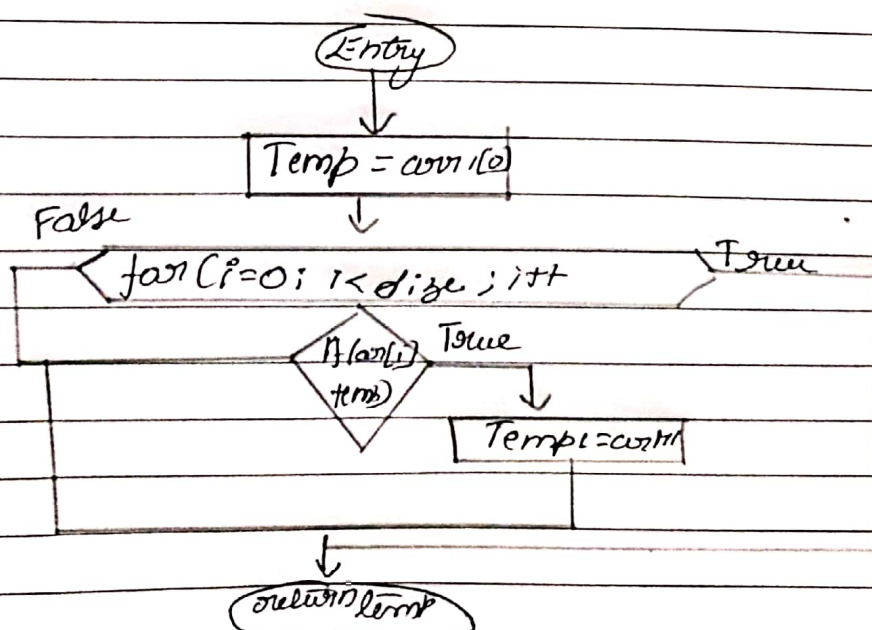 Entry
Temp = arr[0]
False
for(i=0; i<size; i++
True
If(arr[i]
temp)
True
Temp =
return temp